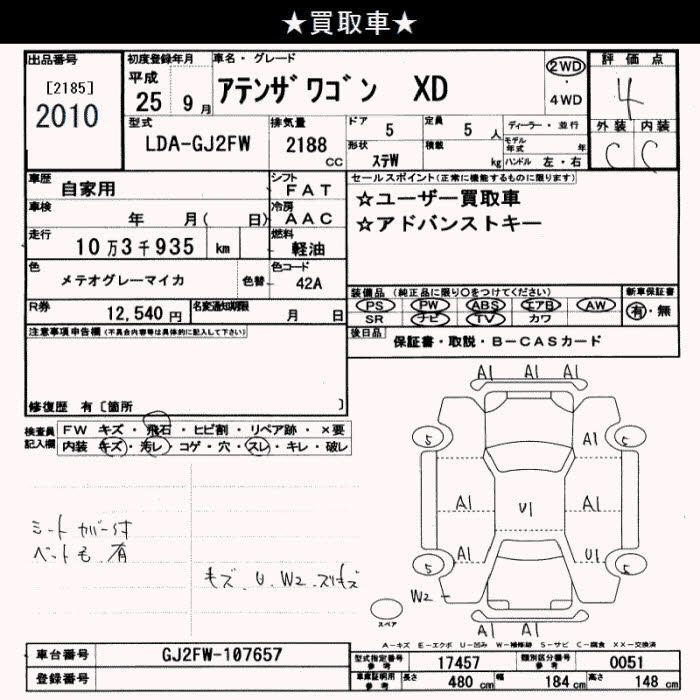 ★買取車★
出品番号
[2185]
2010
初度登録年月
平成
25 9月
車名・グレード
アテンザワゴン XD
2WD
・
4WD
評価点
4
外装 内装
C C
型式
LDA-GJ2FW
排気量
2188
CC
ドア 5
定員 5 人
形状 ステW
積載 kg
ディーラー・並行
モデル年式 年
ハンドル 左・右
車歴 自家用
シフト FAT
車検 年 月( 日)
冷房 AAC
走行 10万3千935 km
燃料 軽油
色 メテオグレーマイカ
色替
色コード 42A
R券 12,540円
名変通知期限 月 日
セールスポイント(正常に機能するものに限ります)
☆ユーザー買取車
☆アドバンストキー
装備品 (純正品に限り○をつけてください)
PS PW ABS エアB AW
SR ナビ TV カワ
新車保証書
有・無
後日品 保証書・取説・B-CASカード
注意事項申告欄(不具合内容等は具体的に記入して下さい)
修復歴 有〔箇所 〕
検査員記入欄
FW キズ・飛石・ヒビ割・リペア跡・×要
内装 キズ・汚レ・コゲ・穴・スレ・キレ・破レ
A1 A1 A1
5 A1 5
A1 U1 A1
A1 U1
5 5
W2
A1 A1
スペア
シートカバー付
ペット毛 有
キズ、U、W2、スリキズ
A-キズ E-エクボ U-凹み W-補修跡 S-サビ C-腐食 XX-交換済
車台番号 GJ2FW-107657
登録番号
型式指定番号 参考 17457
類別区分番号 参考 0051
車庫証明用 参考 長さ 480cm 幅 184cm 高さ 148cm